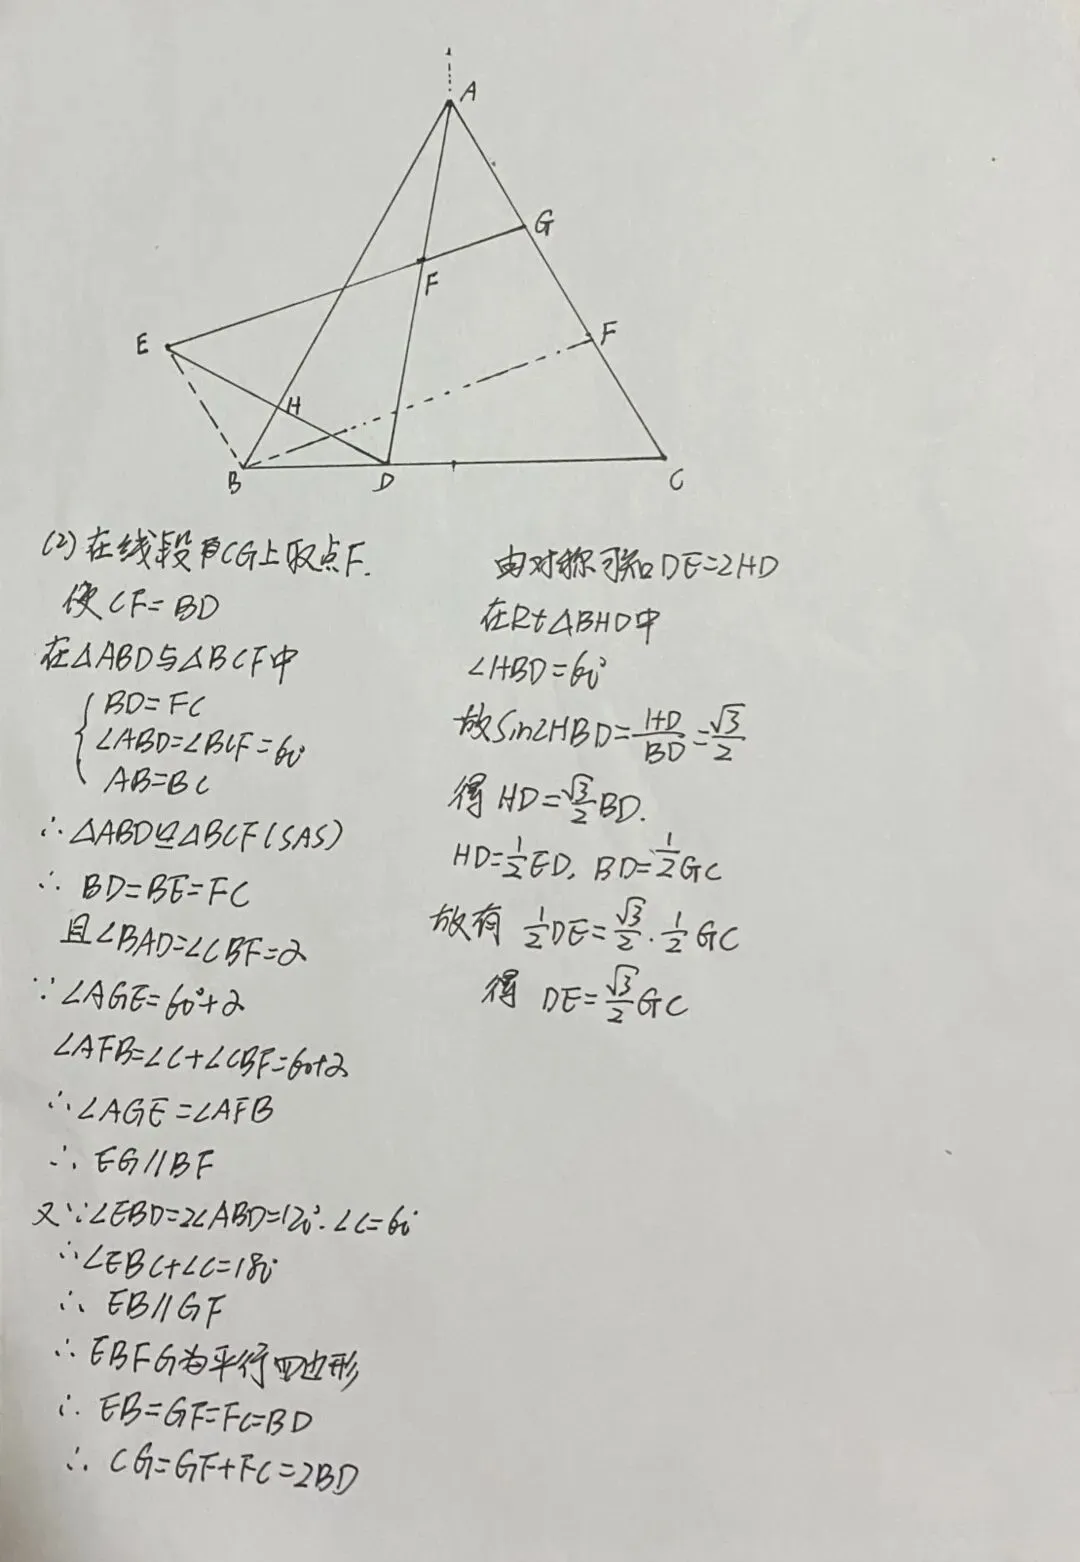 A
G
F
E
F
H
B
D
C
(2)在线段CG上取点F.
使CF=BD
在△ABD与△BCF中
BD=FC
∠ABD=∠BCF=60°
AB=BC
∴△ABD≌△BCF(SAS)
∴ BD=BE=FC
且∠BAD=∠CBF=2
∵∠AGE=60°+2
∠AFB=∠C+∠CBF=60+2
∴∠AGE=∠AFB
∴ EG//BF
又∵∠EBD=2∠ABD=120°.∠C=60°
∴∠EBC+∠C=180°
∴ EB//GF
∴EBFG为平行四边形
∴ EB=GF=FC=BD
∴ CG=GF+FC=2BD
由对称可知DE=2HD
在Rt△BHD中
∠HBD=60°
故Sin∠HBD=HD/BD=√3/2
得 HD=√3/2BD.
HD=1/2ED, BD=1/2GC
故有 1/2DE=√3/2·1/2GC
得 DE=√3/2GC